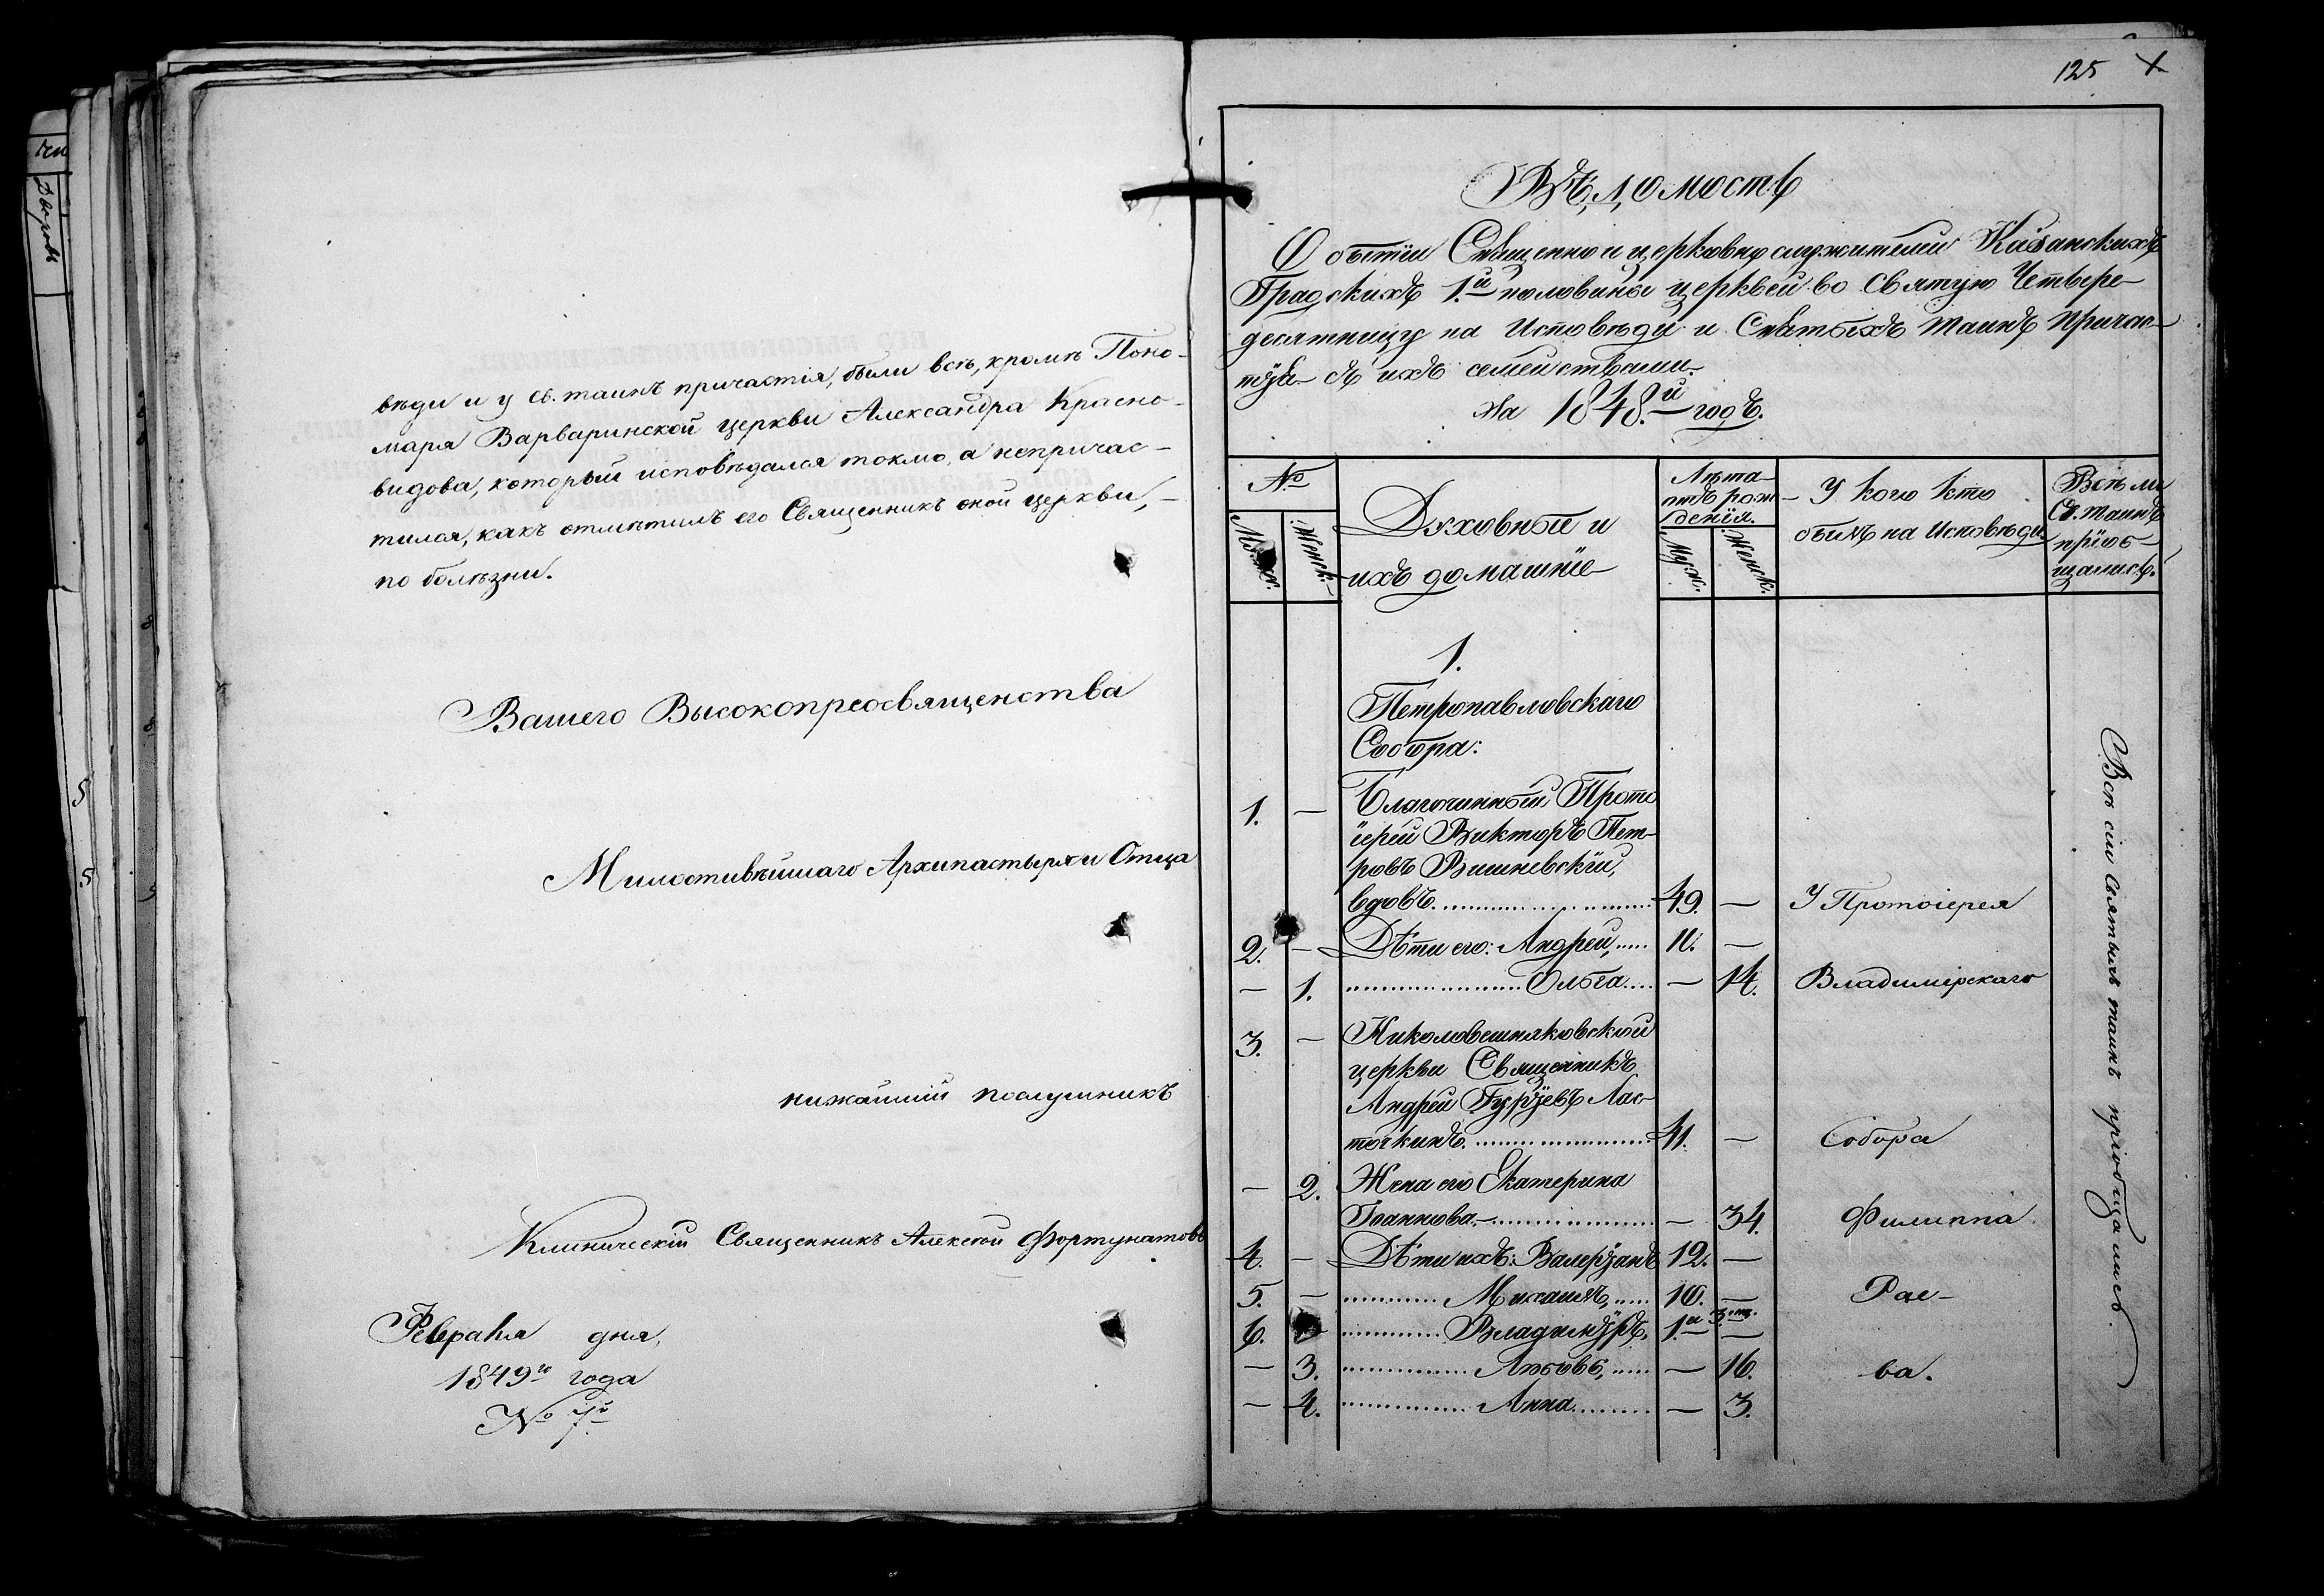 вѣди и у св. таинъ причастія, были всѣ, кромѣ Поно-
маря Варваринской церкви Александра Красно-
видова, который исповѣдался токмо, а непричас-
тился, какъ отмѣтилъ его Священникъ оной церкви,
по болѣзни.
Вашего Высокопреосвященства
Милостивѣйшаго Архипастыря и Отца
нижайшій послушникъ
Клиническій Священникъ Алексѣй Фортунатовъ
Февраля дня,
1849го года
№ 7й
125
Вѣдомость
О бытіи Священно и церковно служителей Казанскихъ
Градскихъ 1.й половины церквей во Святую Четыре-
десятницу на Исповѣди и Святыхъ таинъ причас-
тія съ ихъ семействами.
На 1848.й годъ.
№
Мужес.
Женск.
Духовные и
ихъ домашніе
Лѣта
отъ рож-
денія.
Муж.
Женск.
У кого кто
былъ на Исповѣди
Всѣ ли
Св. таинъ
пріоб-
щались.
1.
Петропавловскаго
Собора:
1. — Благочинный Прото
іерей Викторъ Пет-
ровъ Вишневскій,
вдовъ. 49. — У Протоіерея
2. — Дѣти его: Андрей, 11. —
— 1. Ольга — 14. Владимірскаго
3. — Николовешняковской
церкви Священникъ
Андрей Гурьевъ Лас-
точкинъ. 41. — Собора
— 2. Жена его Екатерина
Іоаннова — 34. Филиппа
4. — Дѣти ихъ: Валеріанъ 12. —
5. — Михаилъ, 10. — Рае-
6. — Владиміръ, 1. —
— 3. Любовь, — 16. ва.
— 4. Анна — 3.
Всѣ сіи Святыхъ таинъ пріобщались